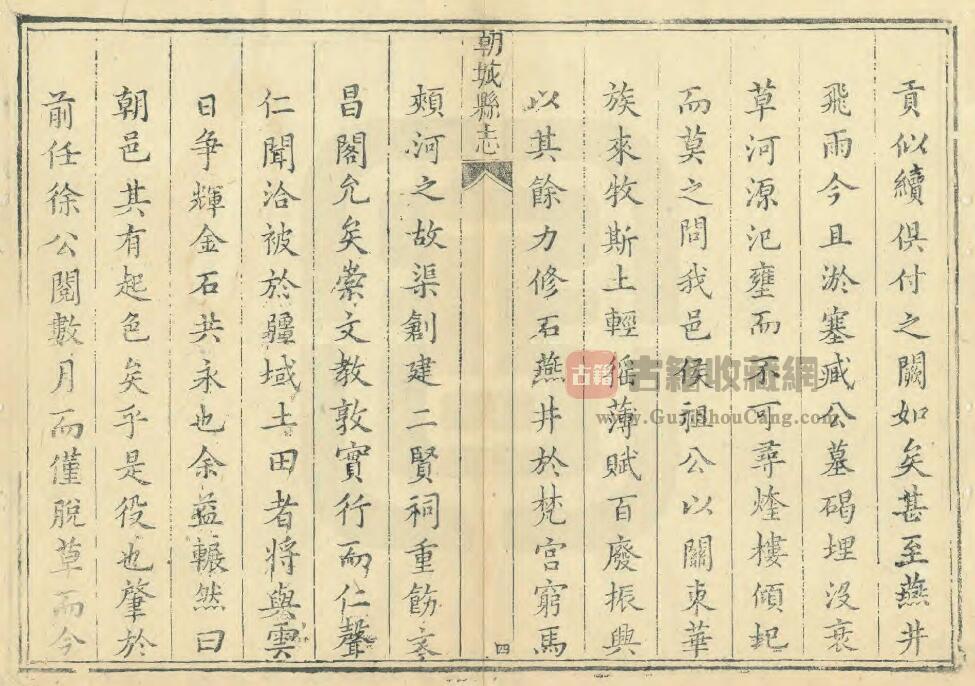 貢似續俱付之闕如矣甚至燕井
飛雨今且淤塞臧公墓碣埋沒衰
草河源汜壅而不可尋烽樓傾圮
而莫之問我邑侯祖公以關東華
族來牧斯土輕徭薄賦百廢振興
以其餘力修石燕井於梵宮窮馬
朝城縣志
四
頰河之故渠創建二賢祠重飭文
昌閣允矣崇文教敦實行而仁聲
仁聞洽被於疆域土田者將與雲
日爭輝金石共永也余益冁然曰
朝邑其有起色矣乎是役也肇於
前任徐公閱數月而僅脫草而今
古籍
古籍收藏網
www.GuJiShouCang.com